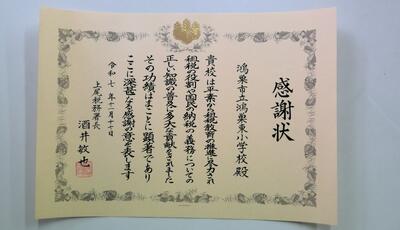 感謝状
鴻巣市立鴻巣東小学校 殿
貴校は平素から租税教育の推進に尽力され
租税の役割や国民の納税の義務についての
正しい知識の普及に多大な貢献をされました
その功績はまことに顕著であり
ここに深甚なる感謝の意を表します
令和七年十一月十七日
上尾税務署長
酒井敏也